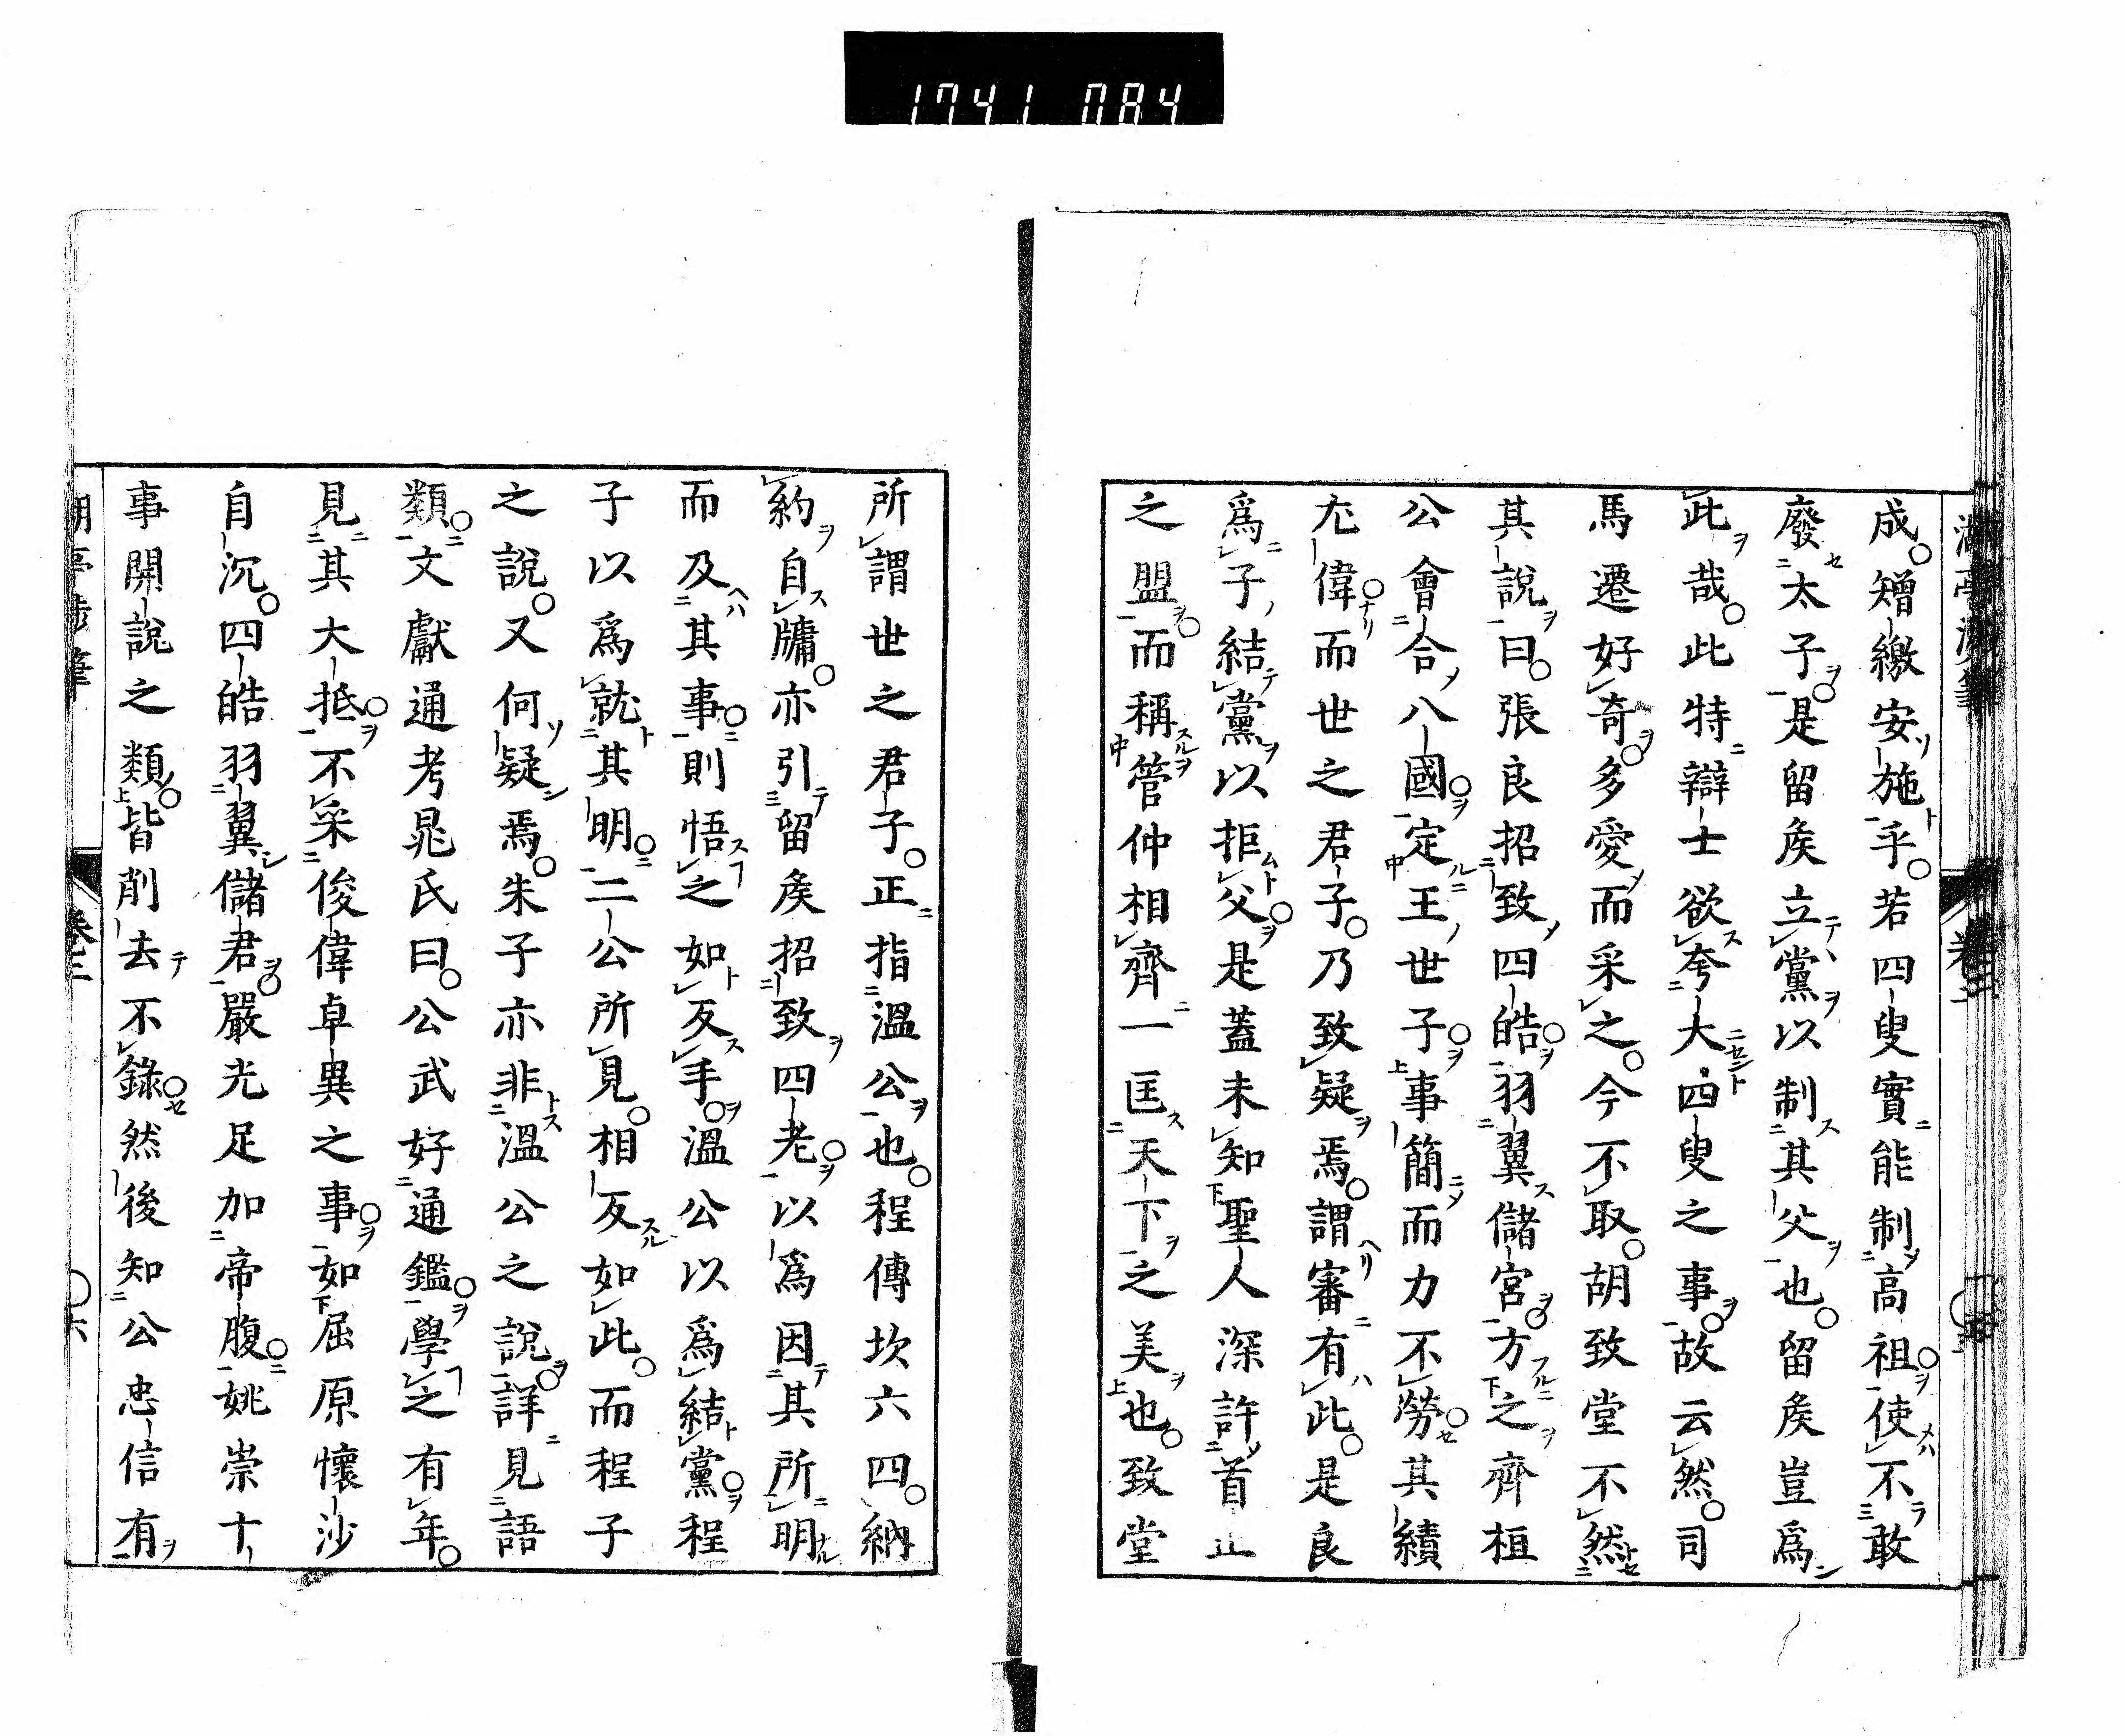 1741 084
成。矰繳安施乎。若四叟實能制高祖使不敢
廢太子。是留矦立黨以制其父也。留矦豈爲
此哉。此特辯士欲夸大四叟之事。故云然。司
馬遷好奇。多愛而采之。今不取。胡致堂不然
其説曰。張良招致四皓羽翼儲宮。方之齊桓
公會合八國定王世子。事簡而力不勞。其績
尤偉。而世之君子。乃致疑焉。謂審有此。是良
爲子結黨以拒父。是蓋未知聖人深許首止
之盟。而稱管仲相齊一匡天下之美也。致堂
所謂世之君子。正指溫公也。程傳坎六四。納
約自牖。亦引留矦招致四老。以爲因其所明
而及其事。則悟之如反手。溫公以爲結黨。程
子以爲就其明。二公所見。相反如此。而程子
之説。又何疑焉。朱子亦非溫公之説。詳見語
類。文獻通考晁氏曰。公武好通鑑。學之有年。
見其大抵。不采俊偉卓異之事。如屈原懷沙
自沉。四皓羽翼儲君。嚴光足加帝腹。姚崇十
事開説之類。皆削去不錄。然後知公忠信有
卷三